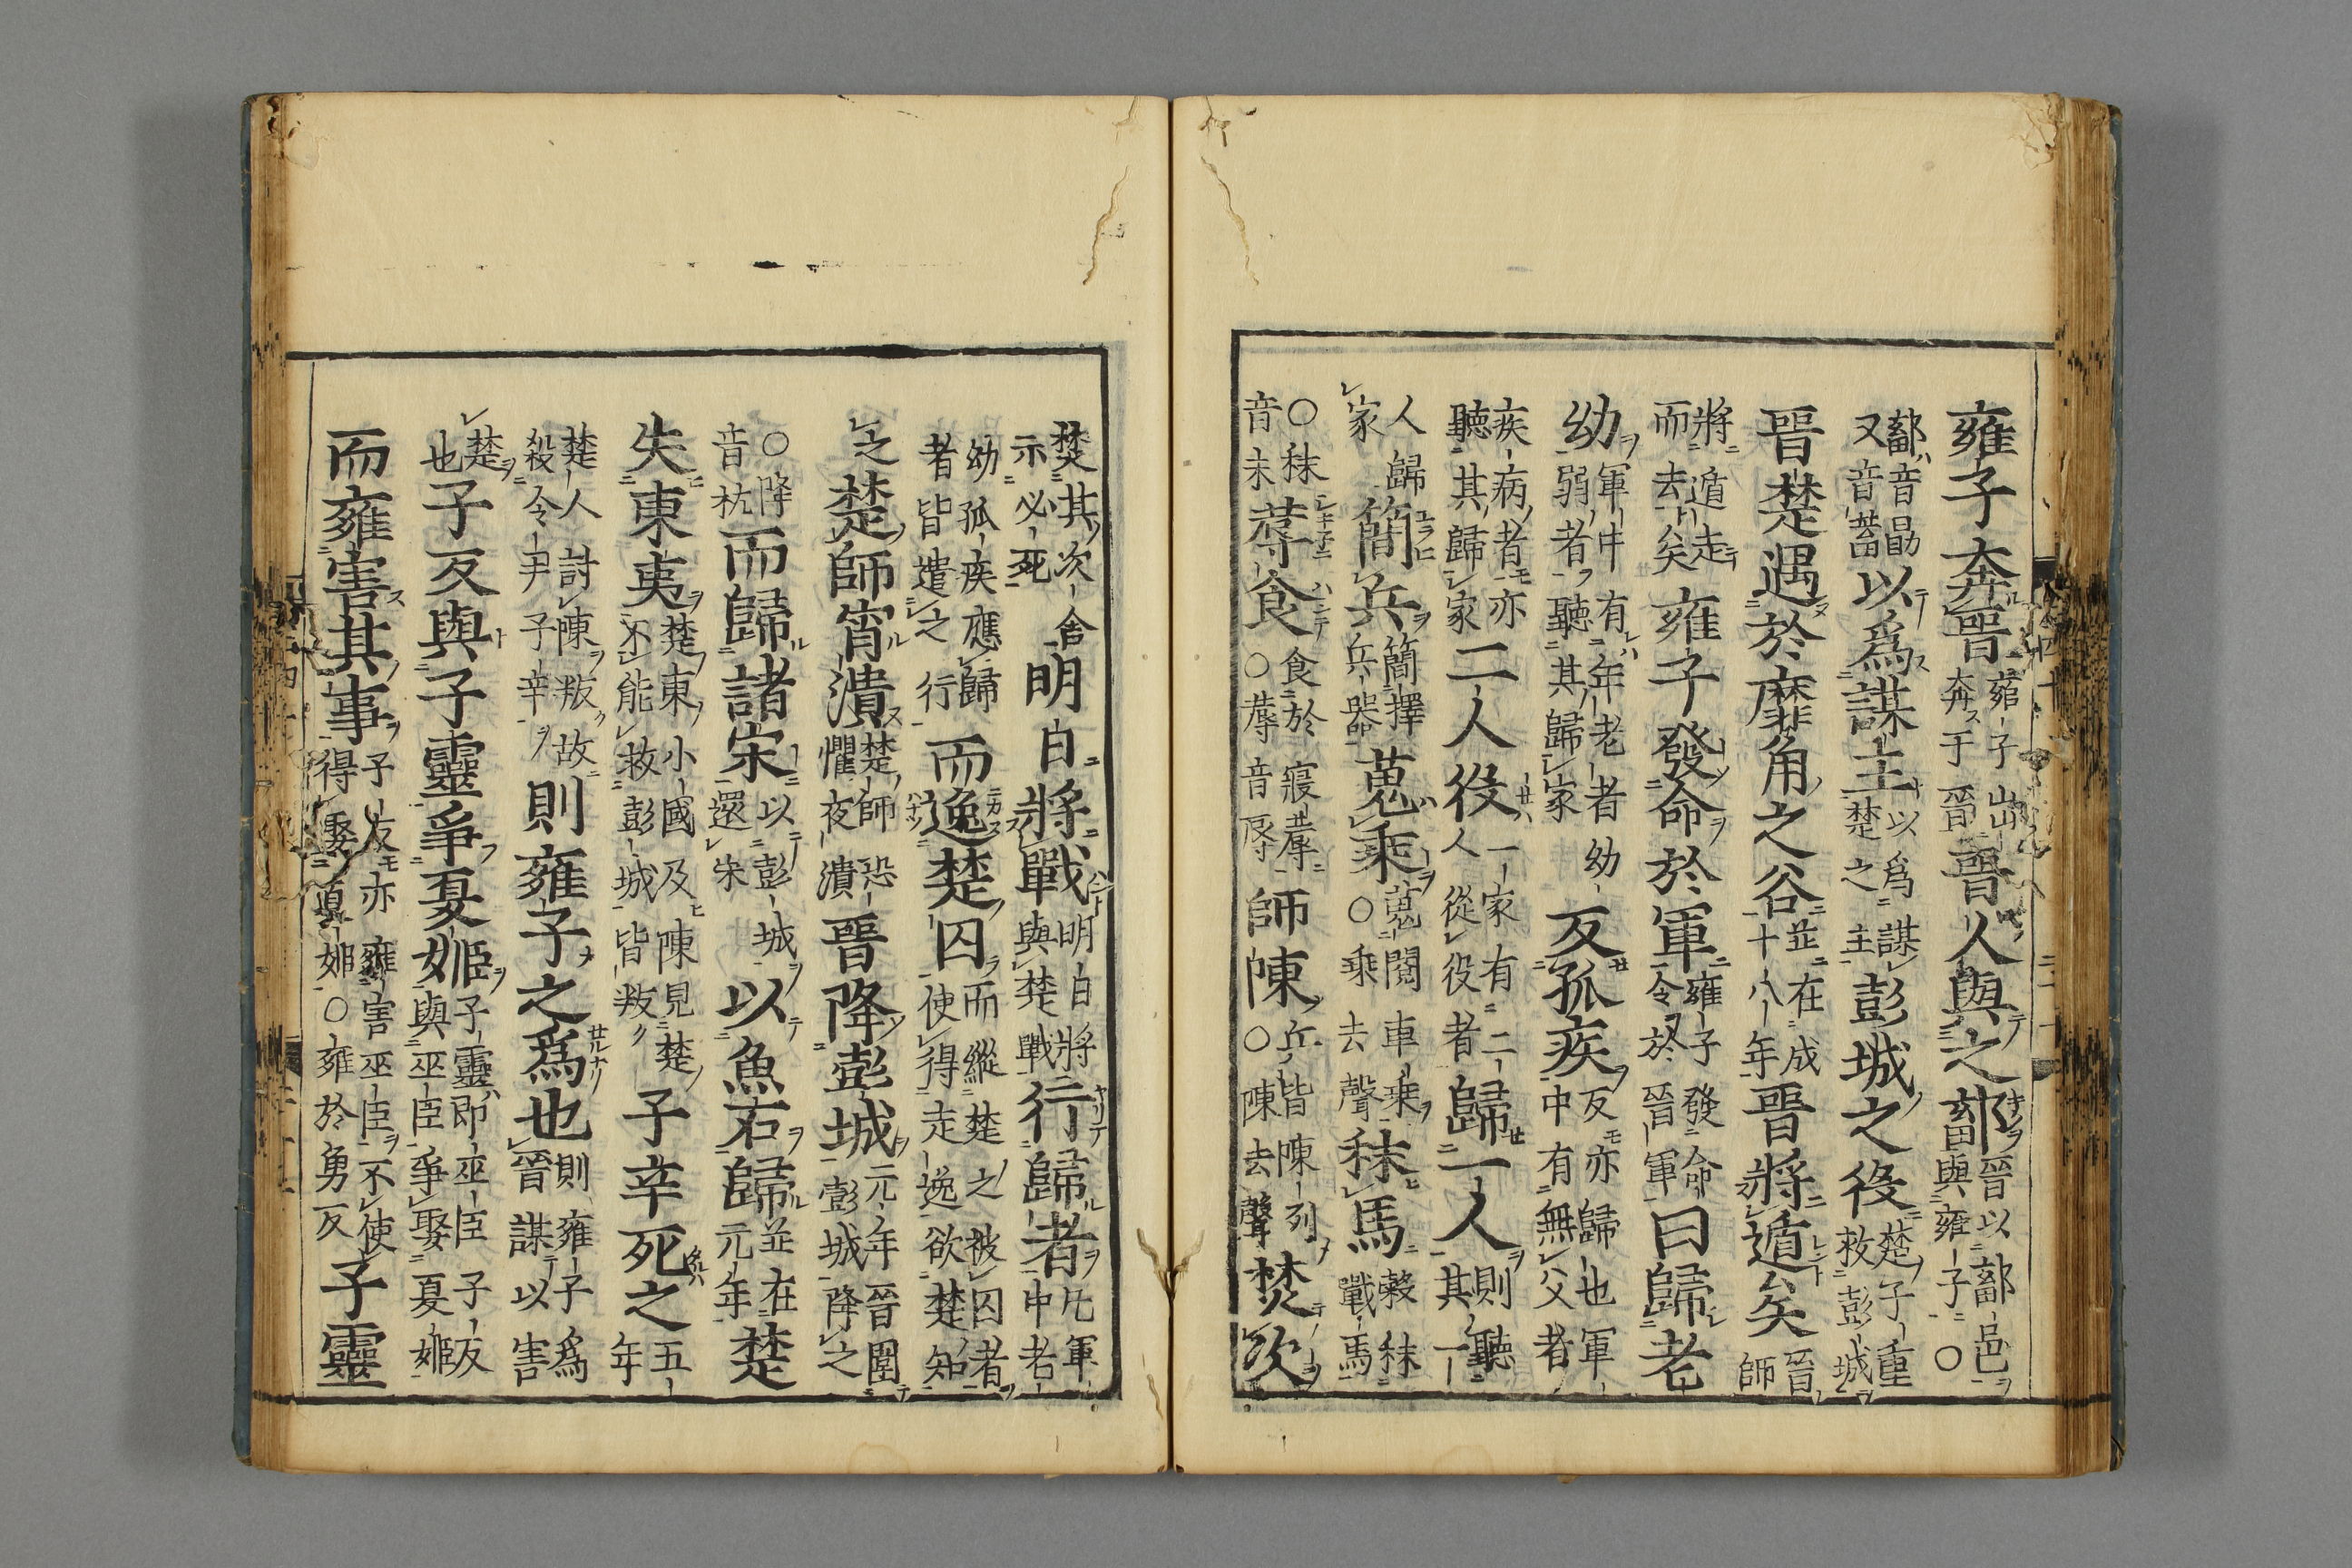 雍子奔晉雍子奔于出晉晉人與之鄐晉以鄐邑與雍子○
鄐音勗又音蓄以爲謀主以爲謀楚之主彭城之役楚子重救彭城
晉楚遇於靡角之谷並在成十八年晉將遁矣晉師
將遁走而去矣雍子發命於軍雍子發命令於晉軍曰歸老
幼軍中有年老者幼弱者聽其歸家反孤疾反亦歸也軍中有無父者
疾病者亦聽其歸家二人役一家有二人從役者歸一人則聽其一
人歸家簡兵簡擇兵器蒐乘蒐閱車乘○乘去聲秣馬穀秣戰馬
○秣音末蓐食食於寢蓐○蓐音辱師陳兵皆陳列○陳去聲焚次
焚其次舍示必死明日將戰明白將與楚戰行歸者凡軍中老
幼孤疾應歸者皆遣之行而逸楚囚而縱楚之被囚者使得走逸欲楚知
之楚師宵潰楚師恐懼夜潰晉降彭城元年晉圍彭城降之
○降音杭而歸諸宋以彭城還宋以魚石歸並在元年楚
失東夷楚東小國及陳見楚不能救彭城皆叛子辛死之五年
楚人討陳叛故殺令尹子辛則雍子之爲也則雍子爲晉謀以害
楚也子反與子靈爭夏姬子靈即巫臣子反與巫臣爭娶夏姬
而雍害其事子反亦雍害巫臣不使得娶夏姬○雍於勇反子靈